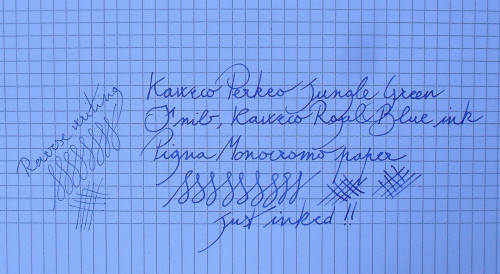 Kaweco Perkeo Jungle Green
F nib, Kaweco Royal Blue ink
Pigna Monocromo paper
just inked!!
Reverse writing